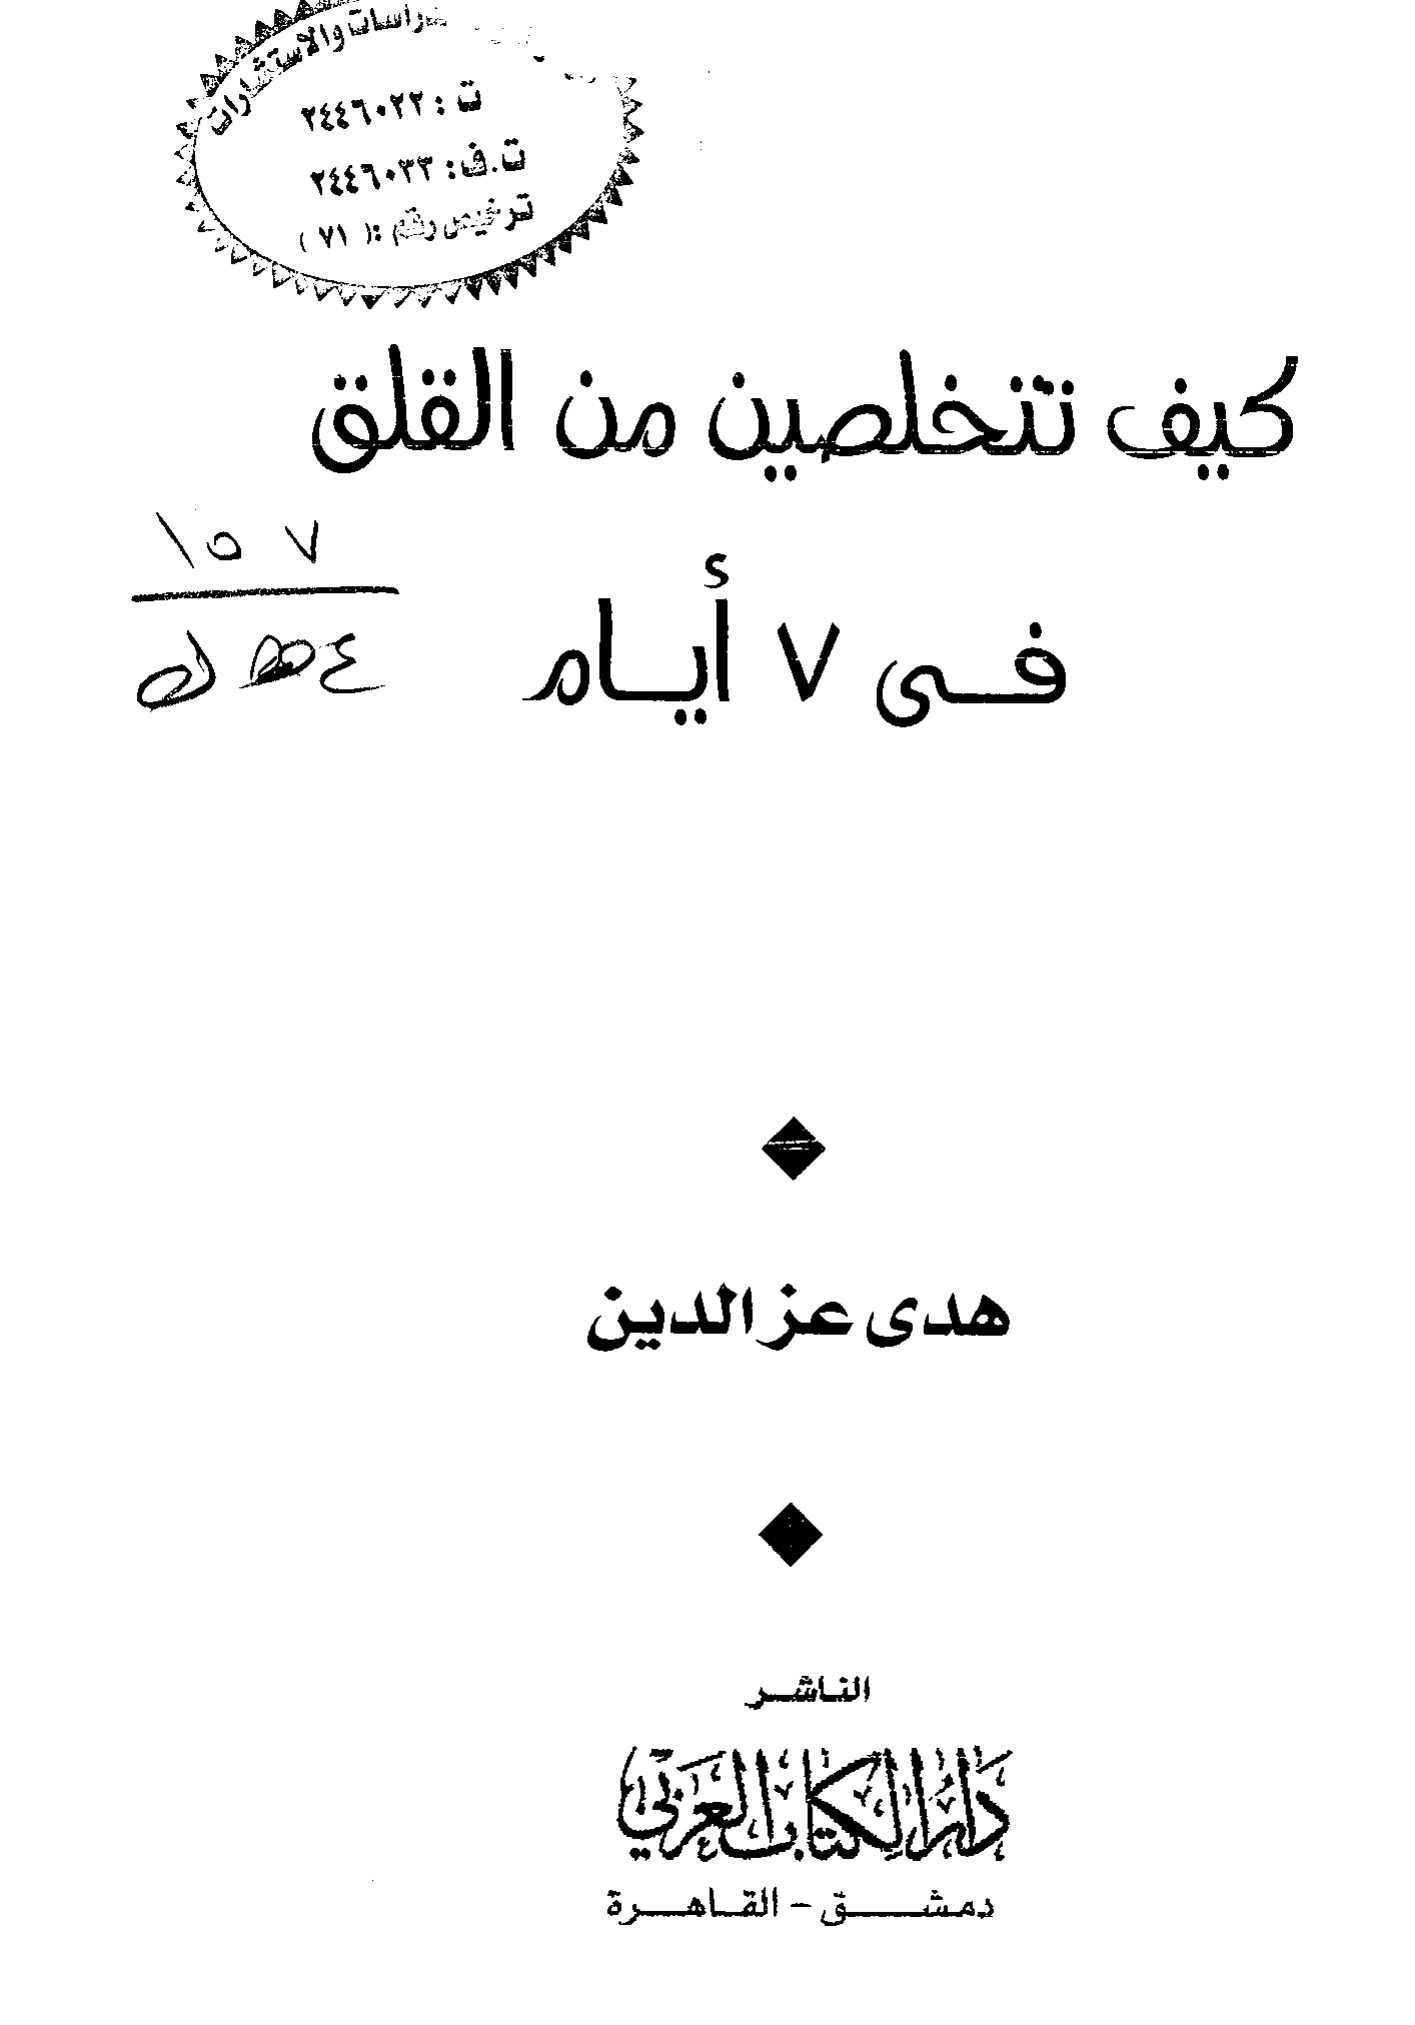 والاستشارات
ت : ٢٤٤٦٠٢٢
ت.ف: ٢٤٤٦٠٣٣
ترخيص رقم :( ٧١ )
كيف تتخلصين من القلق
١٥٧
فى ٧ أيـام
هدى عز الدين
الناشر
دار الكتاب العربي
دمشق - القاهرة